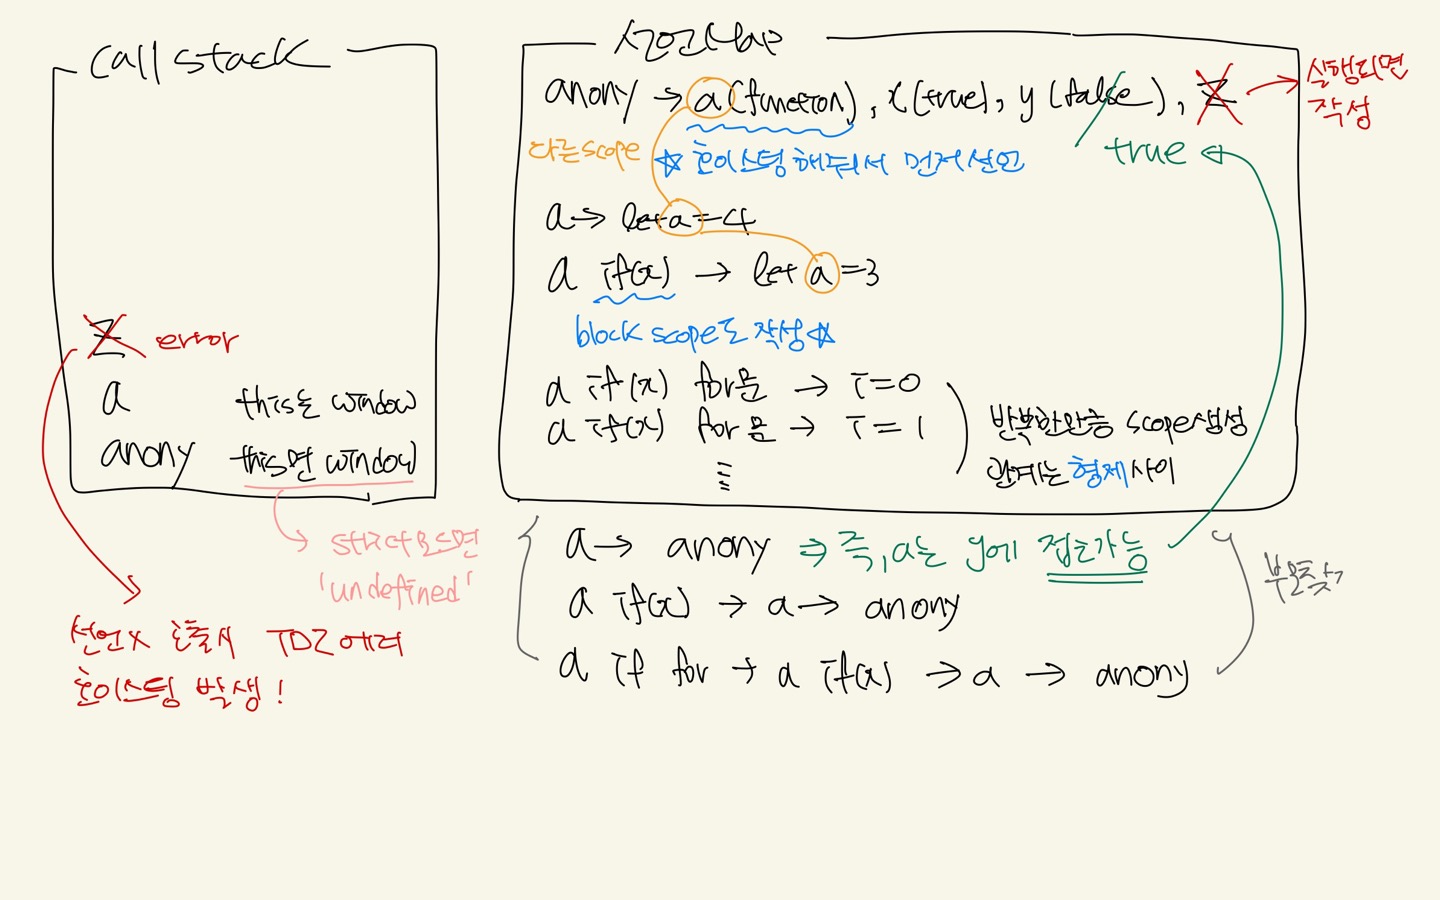 Call stack
Z error
a this는 window
anony this면 window
strict모드면
'undefined'
선언X 호출시 TDZ에러
호이스팅 발생!
선언 Map
anony → a(function), x(true), y(false), Z → 실행되면
작성
true
다른scope ☆ 호이스팅 해줘서 먼저 선언
a → let a=4
a if(x) → let a=3
block scope도 작성☆
a if(x) for문 → i=0
a if(x) for문 → i=1
반복한만큼 scope생성
관계는 형제사이
a → anony ⇒ 즉, a는 y에 접근가능
a if(x) → a → anony
a if for → a if(x) → a → anony
부모찾기